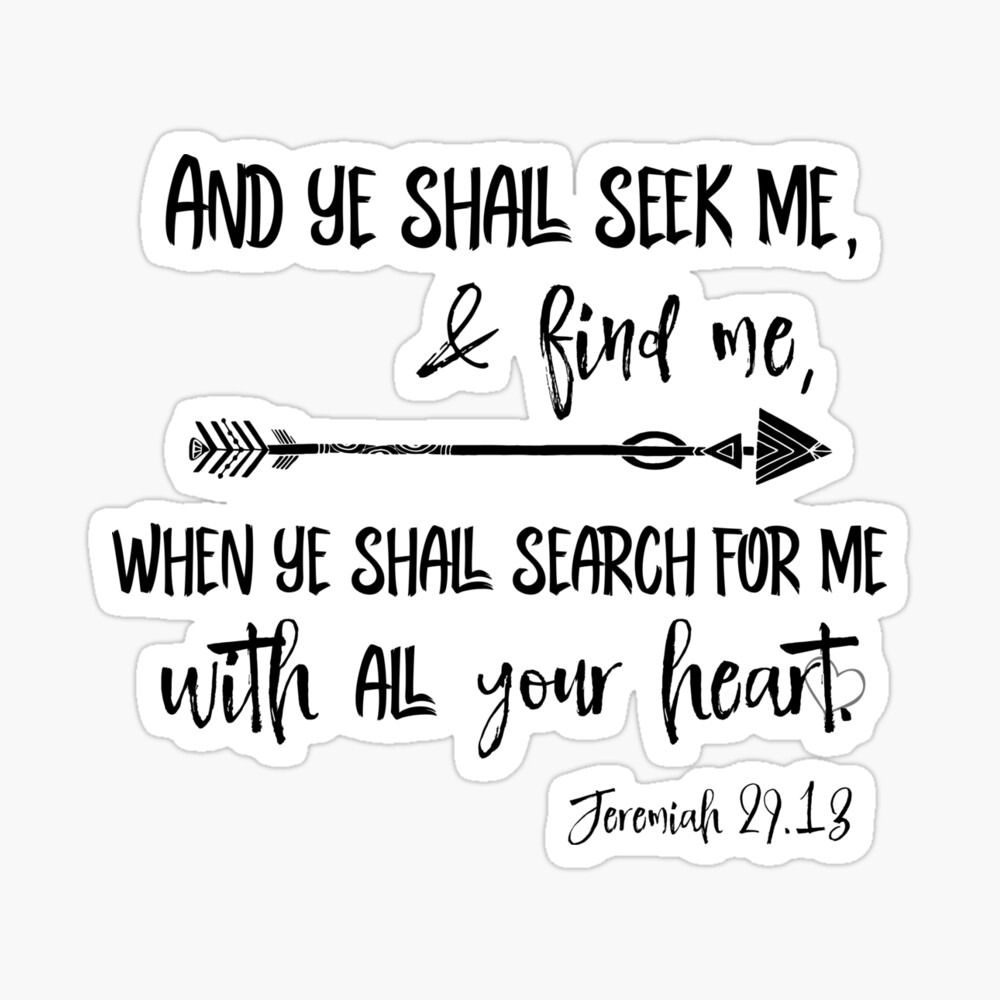 AND YE SHALL SEEK ME,
& find me,
WHEN YE SHALL SEARCH FOR ME
with ALL your heart.
Jeremiah 29.13